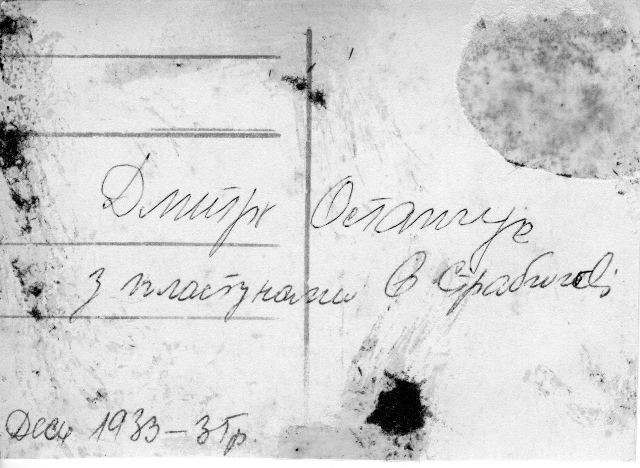 Дмитро Остапчук
з пластунами в Страбичеві
Десь 1933 — 3[?]р.